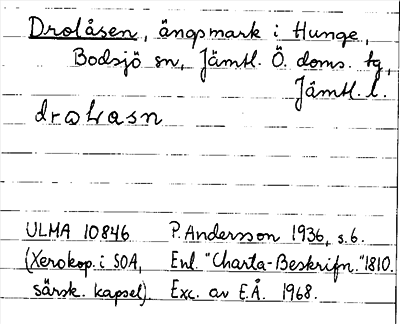 Drolåsen, ängsmark i Hunge,
Bodsjö sn, Jämtl. Ö. doms. tg,
Jämtl. l.
ULMA 10846 P. Andersson 1936, s. 6.
(Xerokop. i SOA, Enl. "Charta-Beskrifn." 1810.
särsk. kapsel). Exc. av E.Å. 1968.